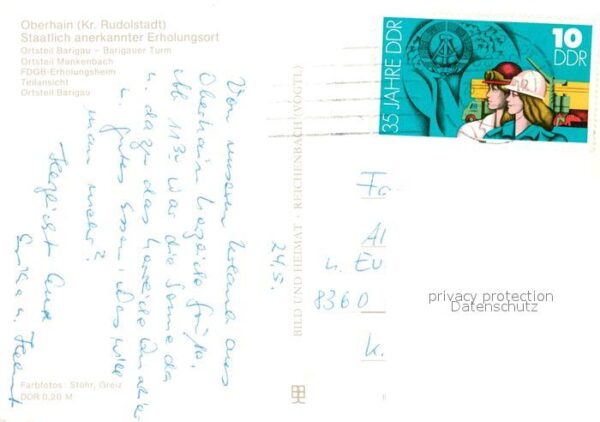 Oberhain (Kr. Rudolstadt)
Staatlich anerkannter Erholungsort
Ortsteil Barigau – Barigauer Turm
Ortsteil Mankenbach
FDGB-Erholungsheim
Teilansicht
Ortsteil Barigau
35 JAHRE DDR
10
DDR
Von unserem Urlaub aus
Oberhain herzliche Grüße.
Ab 11³⁰ war die Sonne da
u. dazu das herrliche Quartier
u. gutes Essen, was will
man mehr?
Herzlichst Eure
Erika u. Helmut
24.5.
BILD UND HEIMAT · REICHENBACH (VOGTL)
Fa
u. Eu
8360
K.
privacy protection
Datenschutz
Farbfotos : Stöhr, Greiz
DDR 0,20 M